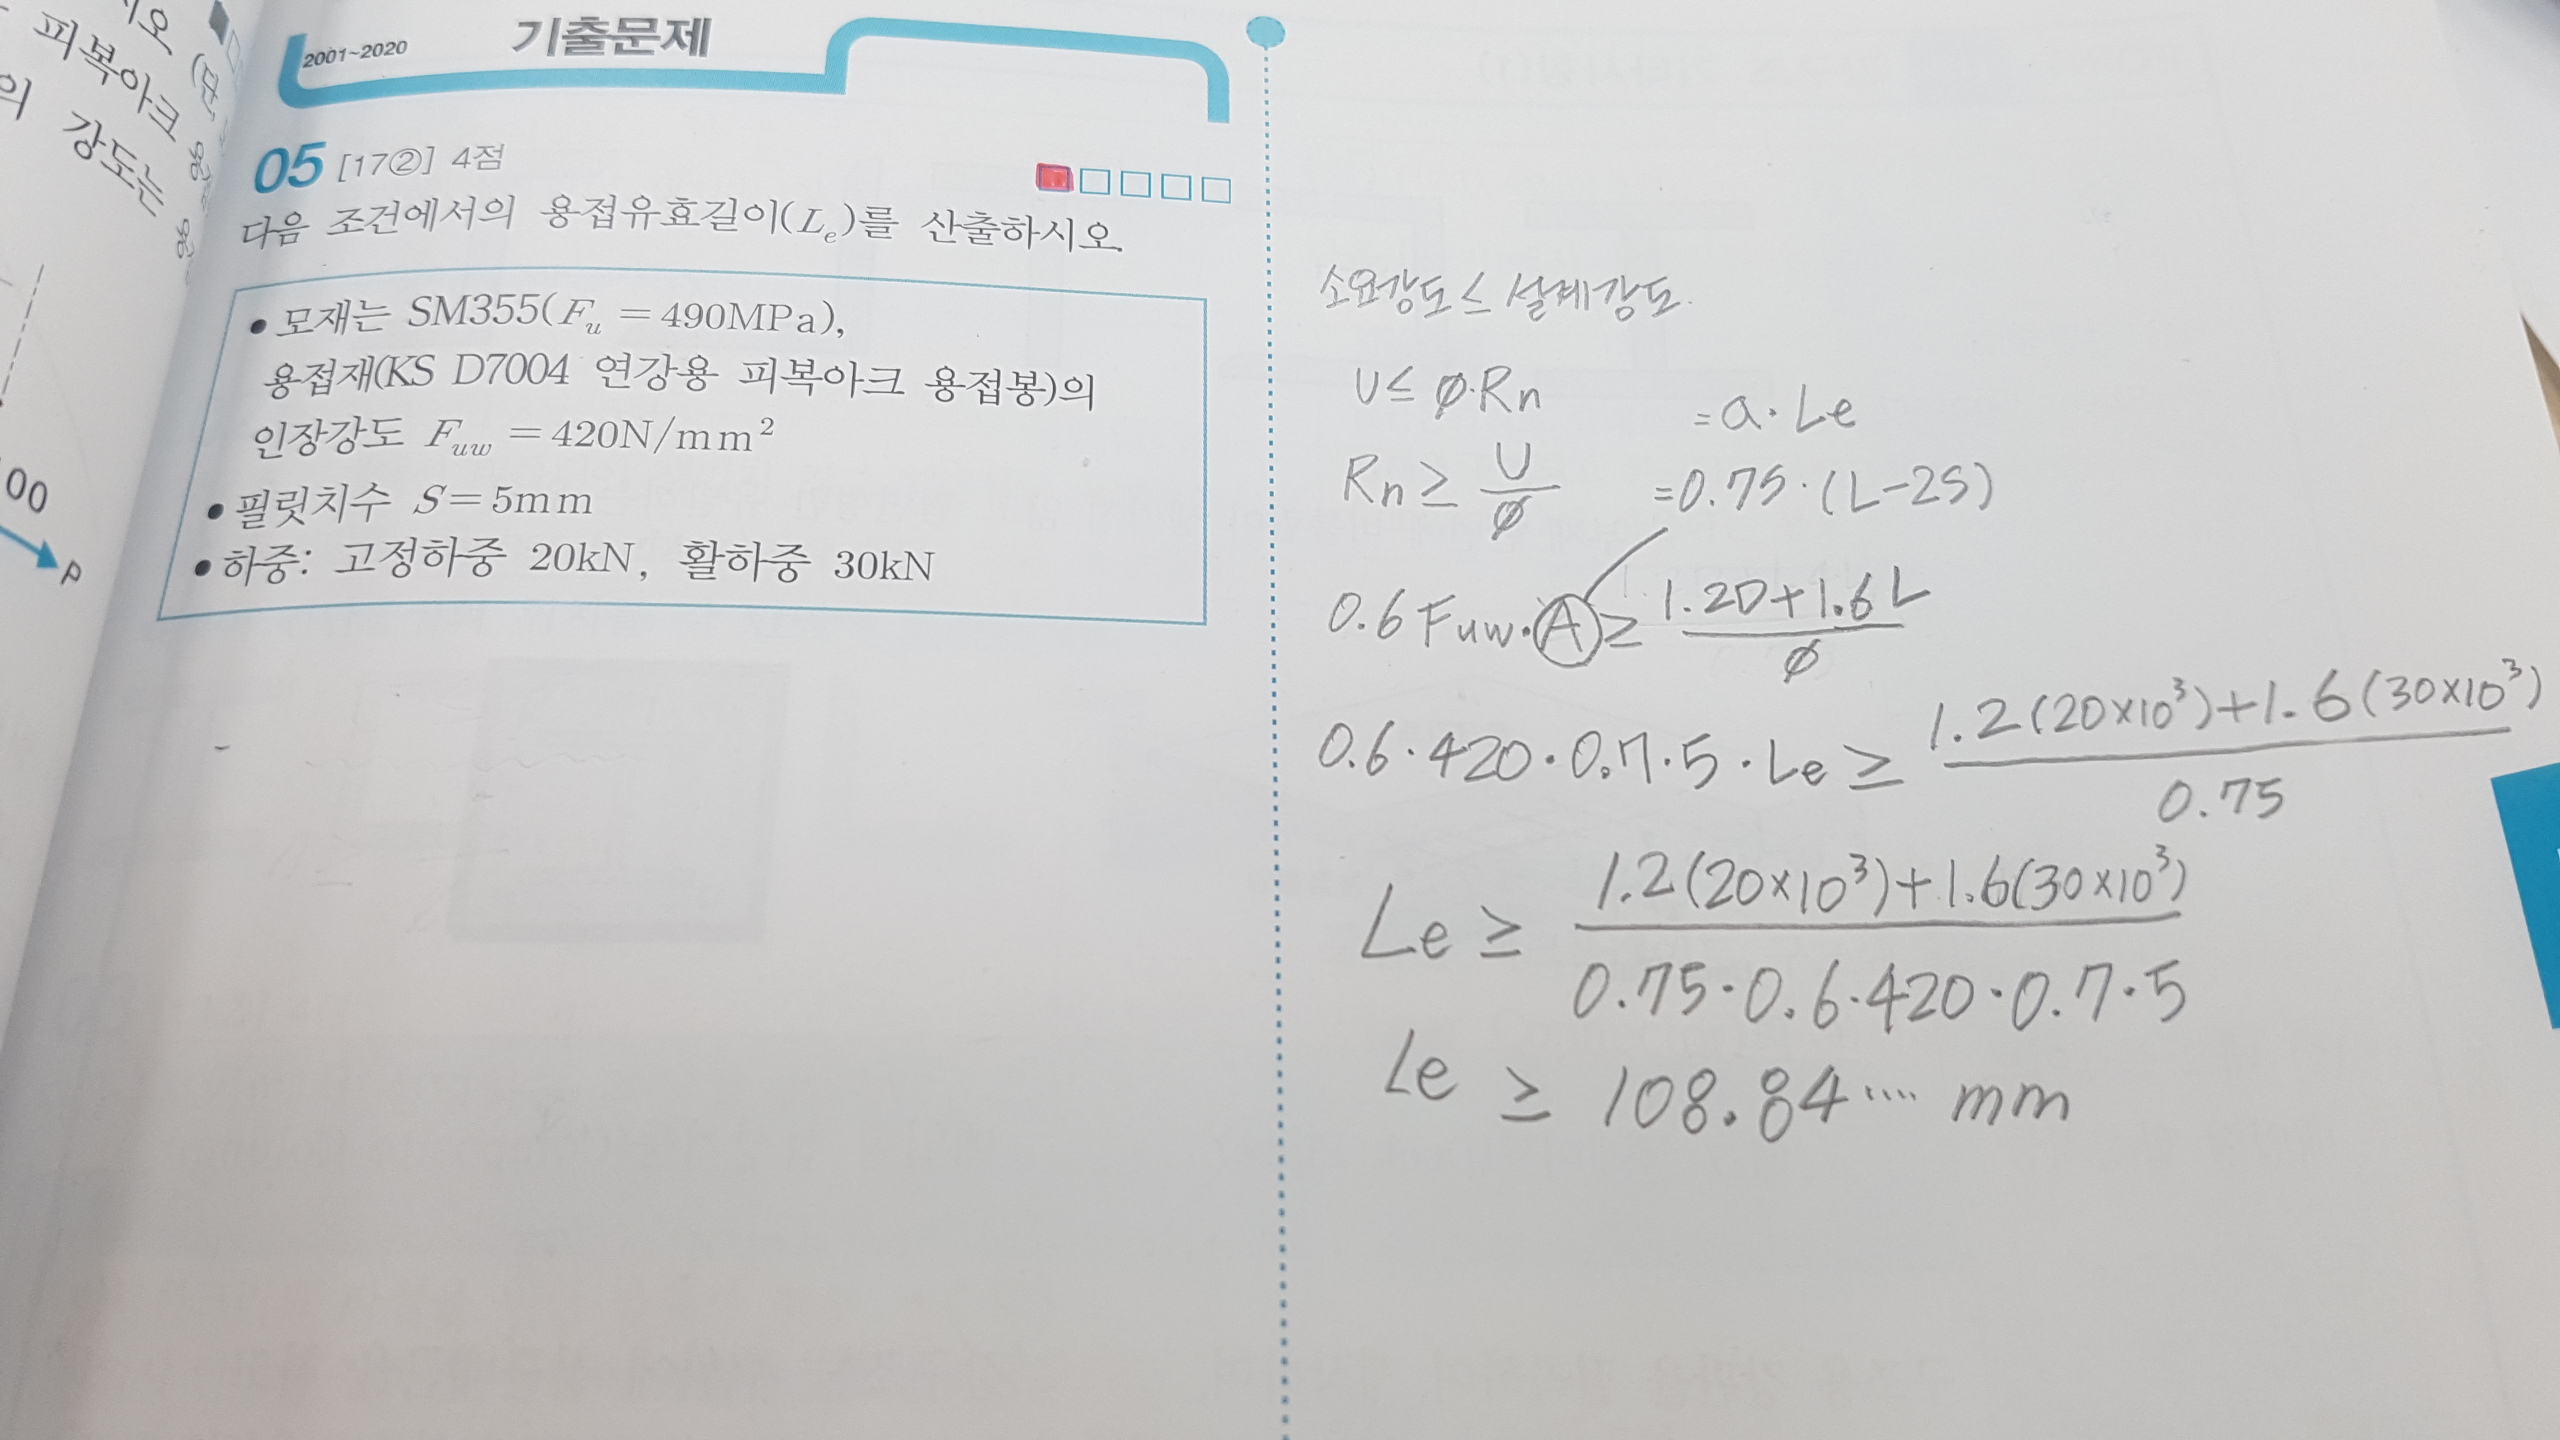 피복아크
강도는
00
P
2001~2020 기출문제
05 [17②] 4점
다음 조건에서의 용접유효길이(Le)를 산출하시오.
• 모재는 SM355(Fu = 490MPa),
용접재(KS D7004 연강용 피복아크 용접봉)의
인장강도 Fuw = 420N/mm²
• 필릿치수 S = 5mm
• 하중: 고정하중 20kN, 활하중 30kN
소요강도 ≤ 설계강도.
U ≤ ø·Rn
Rn ≥ U/ø
= a·Le
= 0.7S·(L-2S)
0.6 Fuw·A ≥ (1.2D+1.6L)/ø
0.6·420·0.7·5·Le ≥ (1.2(20×10³)+1.6(30×10³))/0.75
Le ≥ (1.2(20×10³)+1.6(30×10³))/(0.75·0.6·420·0.7·5)
Le ≥ 108.84···· mm